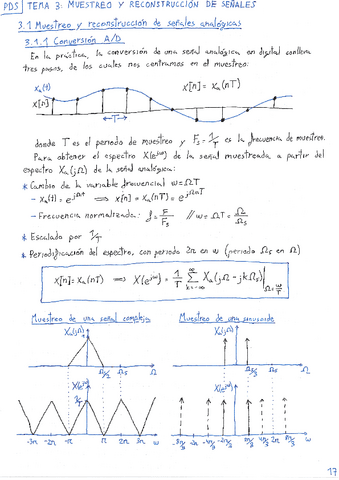 PDS TEMA 3: MUESTREO Y RECONSTRUCCIÓN DE SEÑALES
3.1 Muestreo y reconstrucción de señales analógicas
3.1.1 Conversión A/D
En la práctica, la conversión de una señal analógica en digital conlleva
tres pasos, de los cuales nos centramos en el muestreo:
xₐ(t)
x[n]
x[n] = xₐ(nT)
T
donde T es el periodo de muestreo y Fs = 1/T es la frecuencia de muestreo.
Para obtener el espectro X(e^jω) de la señal muestreada a partir del
espectro Xₐ(jΩ) de la señal analógica:
* Cambio de la variable frecuencial ω=ΩT
- xₐ(t) = e^jΩt ⟹ x[n] = xₐ(nT) = e^jΩnT
- Frecuencia normalizada: f = F/Fs // ω = ΩT = Ω/Ωs
* Escalado por 1/T
* Periodificación del espectro, con periodo 2π en ω (periodo Ωs en Ω)
x[n] = xₐ(nT) ⟹ X(e^jω) = 1/T ∑ k=-∞ ∞ Xₐ(jΩ - jkΩs)|Ω=ω/T
Muestreo de una señal compleja
Muestreo de una sinusoide
Xₐ(jΩ)
Xₐ(jΩ)
Ωs/2 Ωs Ω
Ωs/3 Ωs Ω
X(e^jω)
X(e^jω)
1/T
-3π -2π -π π 2π 3π ω
-8π/3 -2π -4π/3 2π/3 4π/3 2π 8π/3 ω
17